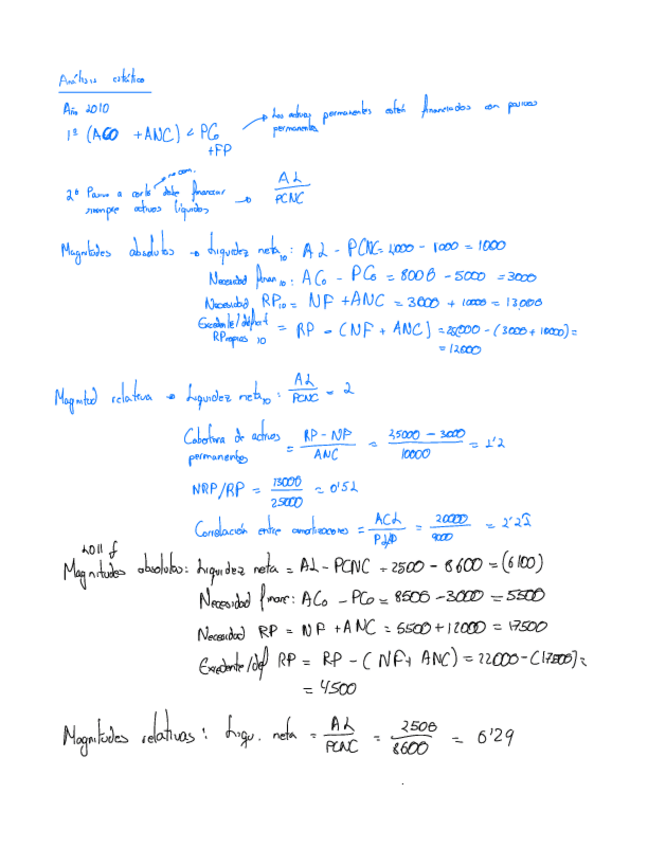 Análisis estático
Año 2010
1º (ACO + ANC) < PCo + FP → Los activos permanentes están financiados con pasivos permanentes
2º Pasivo a corto no com. debe financiar siempre activos líquidos → AL / PCNC
Magnitudes absolutas → Liquidez neta10: AL - PCNC = 2,000 - 1000 = 1000
Necesidad finan.10: ACo - PCo = 8000 - 5000 = 3000
Necesidad RP10 = NF + ANC = 3000 + 10000 = 13,000
Excedente/déficit RPropios 10 = RP - (NF + ANC) = 25,000 - (3000 + 10000) =
= 12000
Magnitud relativa → Liquidez neta10: AL / PCNC = 2
Cobertura de activos permanentes = RP - NF / ANC = 25000 - 3000 / 10000 = 2'2
NRP/RP = 13000 / 25000 = 0'52
Correlación entre = ACL / = 20000 / 9000 = 2'22
2011
Magnitudes absolutas: Liquidez neta = AL - PCNC = 2500 - 8600 = (6100)
Necesidad financ: ACo - PCo = 8500 - 3000 = 5500
Necesidad RP = NF + ANC = 5500 + 12000 = 17500
Excedente/def RP = RP - (NF + ANC) = 22000 - (17500) =
= 4500
Magnitudes relativas: Liqu. neta = AL / PCNC = 2500 / 8600 = 0'29